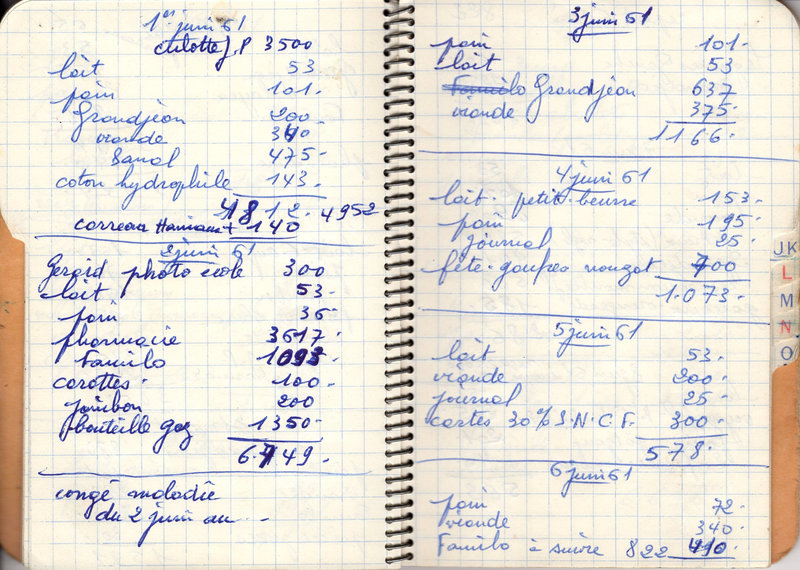 1er juin 61
culotte J.P 3500
lait 53
pain 101.
Grandjean 200
viande 340
Banal 475.
coton hydrophile 143.
4812. 4952
carreau 140
2 juin 61
Gerard photo ecole 300
lait 53.
pain 36.
pharmacie 3617.
Familo 1093
carottes. 100.
jambon 200
bouteille gaz 1350.
6.749.
congé maladie
du 2 juin au . -
3 juin 61
pain 101.
lait 53
Familo Grandjean 637
viande 375.
1166.
4 juin 61
lait. petit. beurre 153.
pain 195.
journal 25.
fête. gaufres nougat 700
1.073.
5 juin 61
lait 53.
viande 200.
journal 25.
cartes 30% S.N.C.F. 300.
578.
6 juin 61
pain 72.
viande 340.
Familo à suivre 822 410.
JK
L
M
N
O